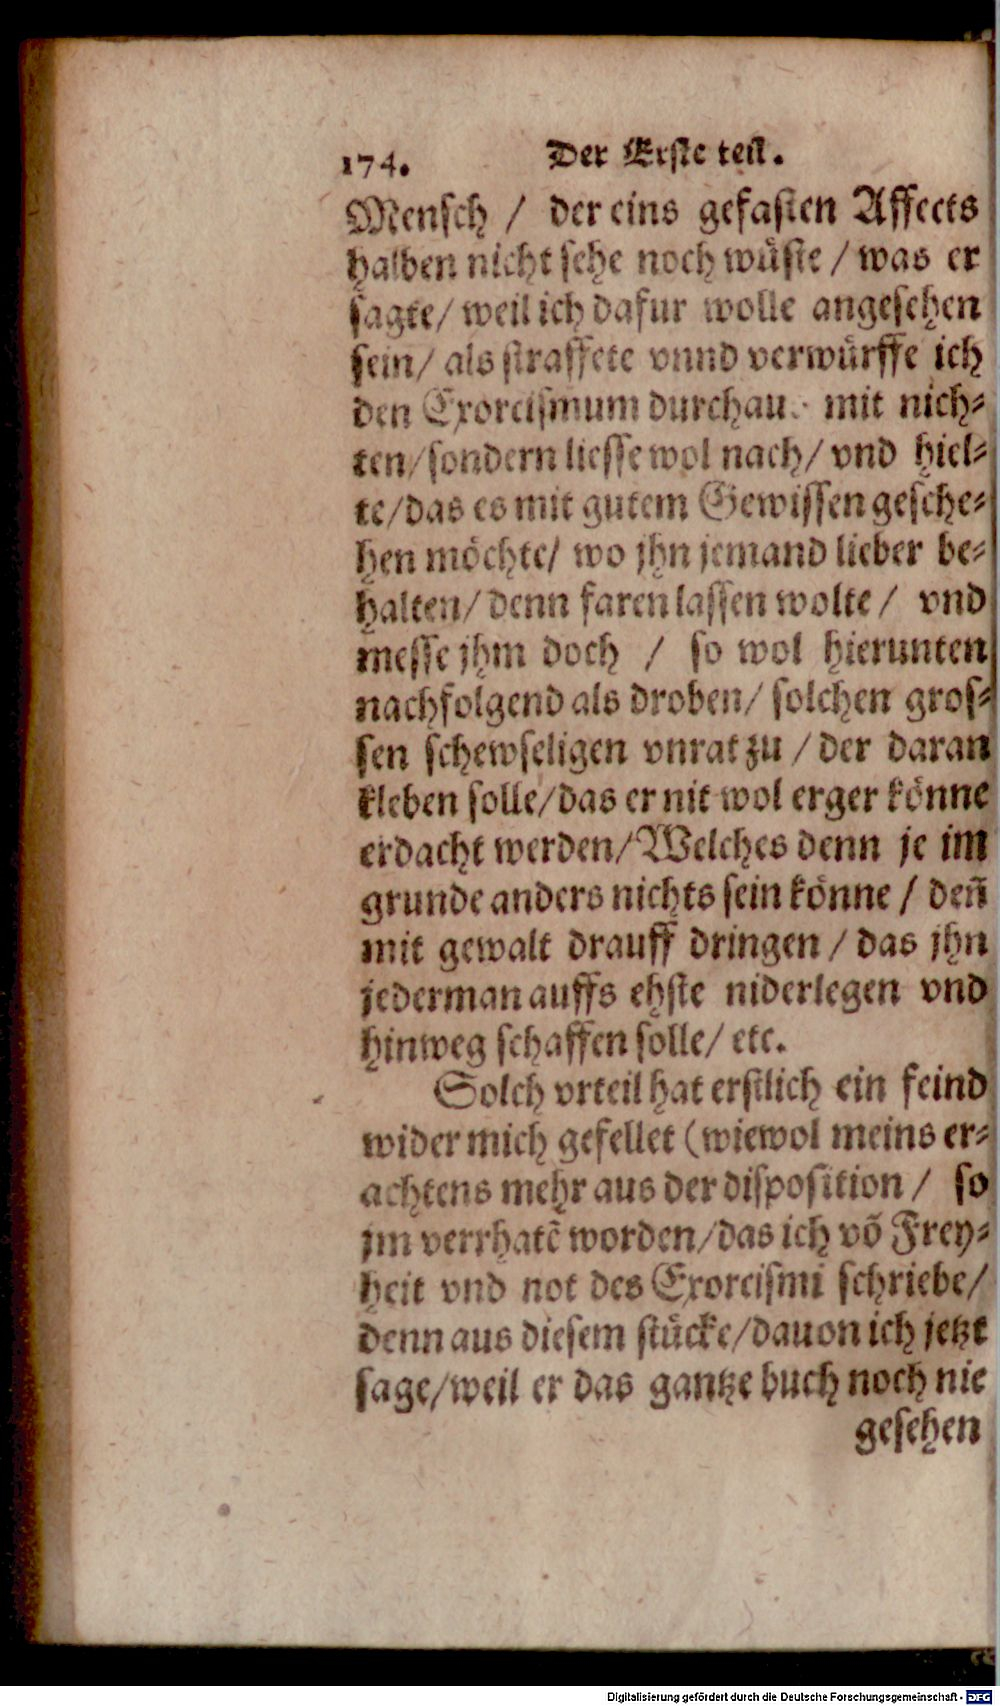 174. Der Erste teil.
Mensch / der eins gefasten Affects
halben nicht sehe noch wüste / was er
sagte / weil ich dafur wolle angesehen
sein / als straffete vnnd verwürffe ich
den Exorcismum durchau. mit nich⸗
ten / sondern liesse wol nach / vnd hiel⸗
te / das es mit gutem Gewissen gesche⸗
hen möchte / wo jhn jemand lieber be⸗
halten / denn faren lassen wolte / vnd
messe jhm doch / so wol hierunten
nachfolgend als droben / solchen gros⸗
sen schewseligen vnrat zu / der daran
kleben solle / das er nit wol erger könne
erdacht werden / Welches denn je im
grunde anders nichts sein könne / deñ
mit gewalt drauff dringen / das jhn
jederman auffs ehste niderlegen vnd
hinweg schaffen solle / etc.
Solch vrteil hat erstlich ein feind
wider mich gefellet (wiewol meins er⸗
achtens mehr aus der disposition / so
jm verrhatẽ worden / das ich võ Frey⸗
heit vnd not des Exorcismi schriebe /
denn aus diesem stücke / dauon ich jetzt
sage / weil er das gantze buch noch nie
gesehen
Digitalisierung gefördert durch die Deutsche Forschungsgemeinschaft - DFG